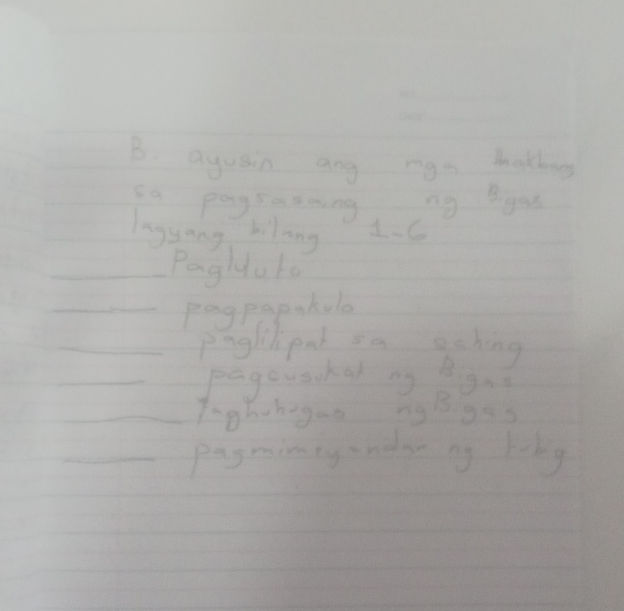 B. ayusin ang mga hakbang
sa pagsasaing ng Bigas
lagyang bilang 1-6
Pagluluto
pagpapakulo
paglilipat sa
pagsusukat ng Bigas
Paghuhugas ng Bigas
ng t-big